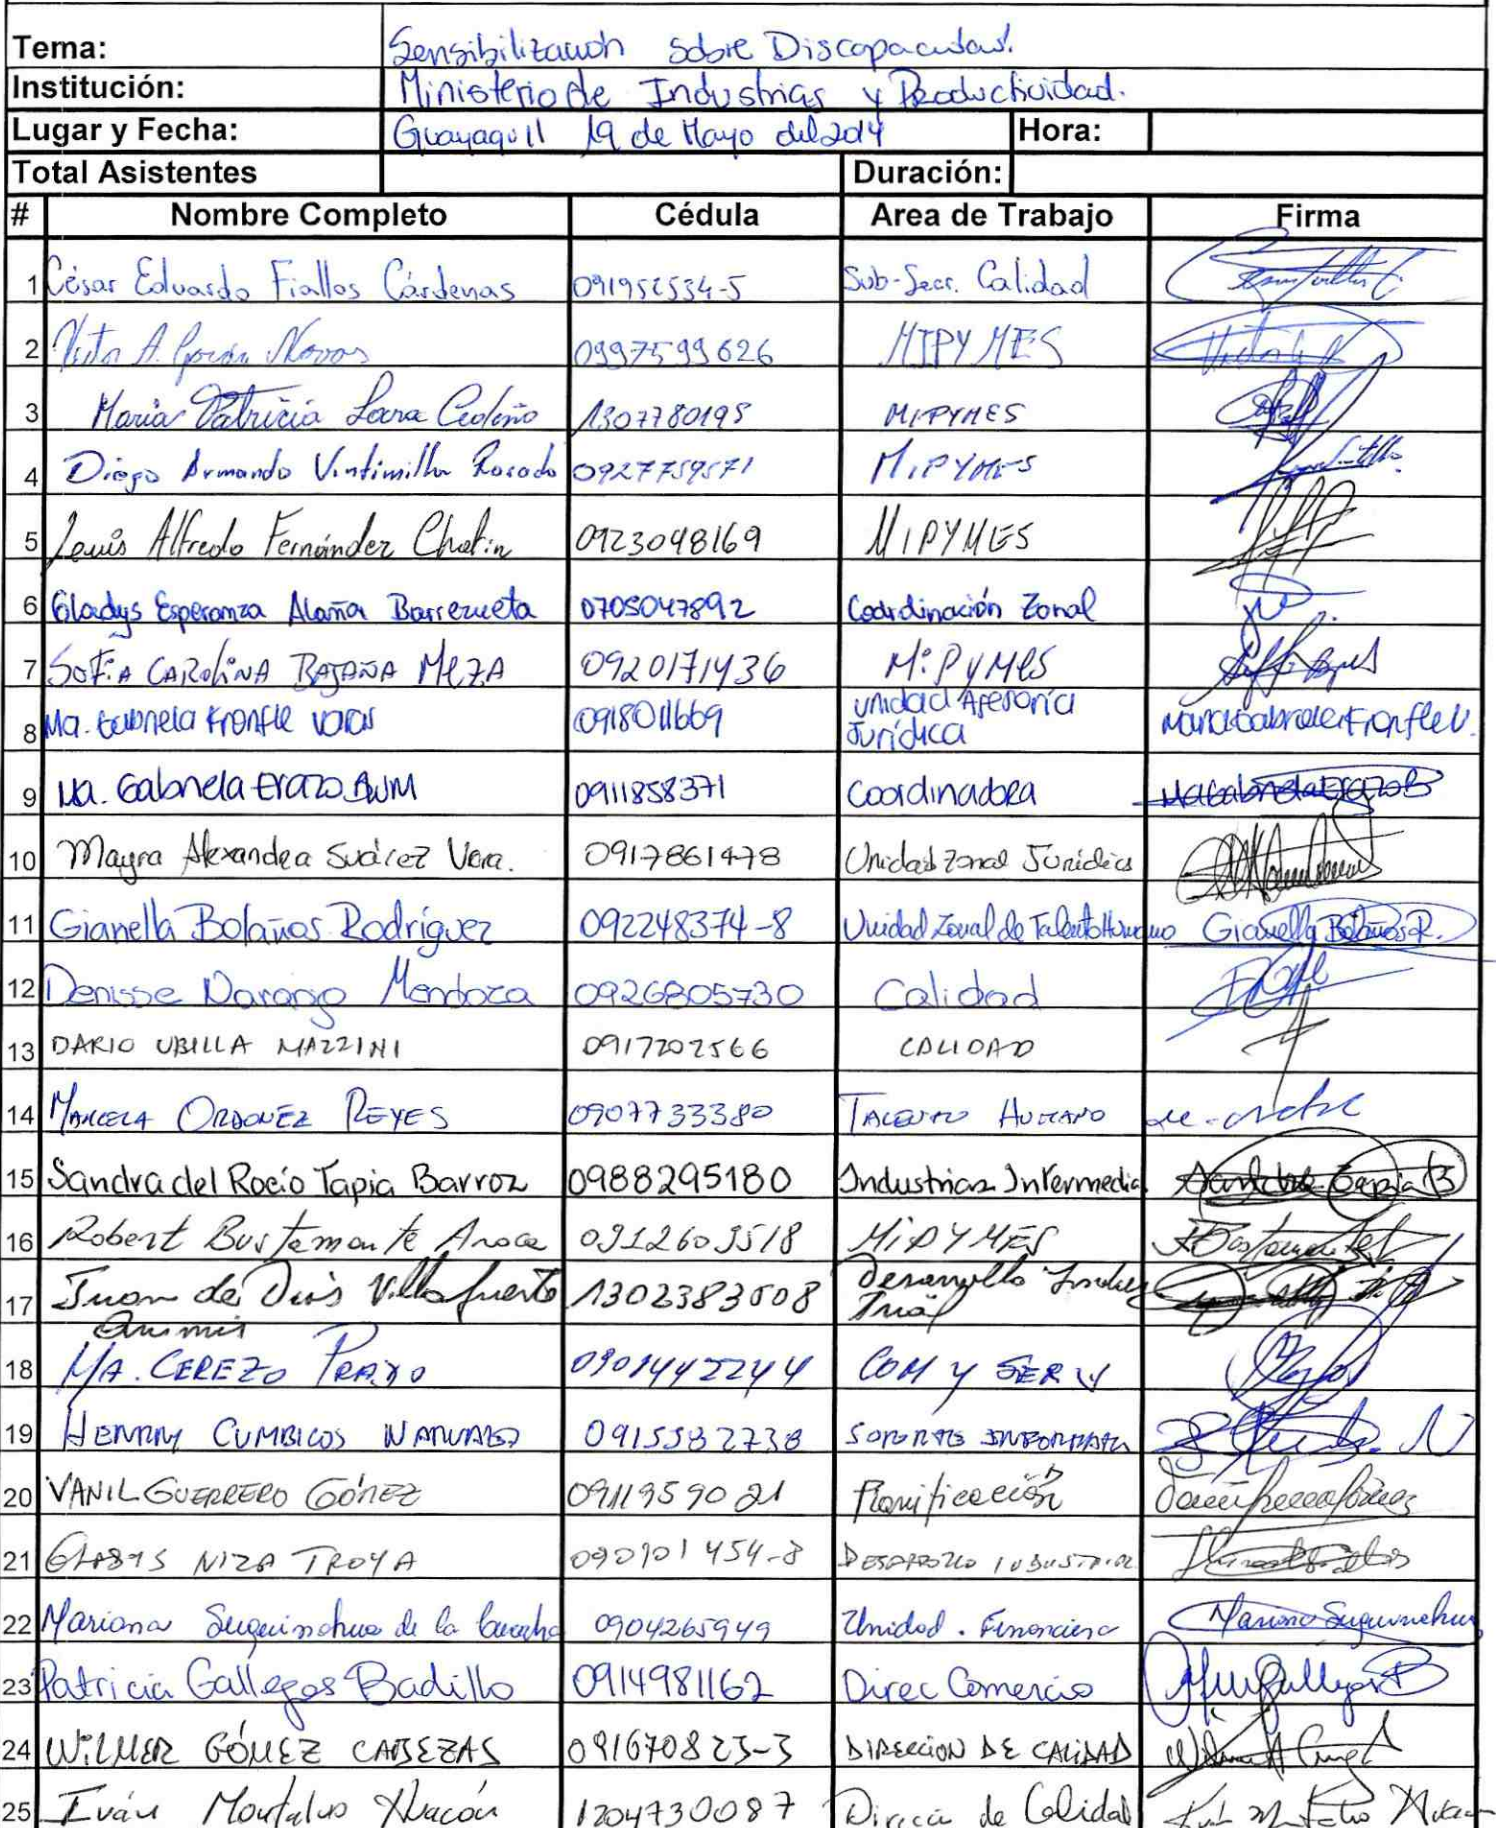 Tema: Sensibilización sobre Discapacidad.
Institución: Ministerio de Industrias y Productividad.
Lugar y Fecha: Guayaquil 19 de Mayo del 2014 Hora:
Total Asistentes Duración:
# Nombre Completo Cédula Area de Trabajo Firma
1 César Eduardo Fiallos Cárdenas 091952534-5 Sub-Secr. Calidad
2 0997599626 MIPYMES
3 Maria Patricia Loora Cedeño 1307780195 MIPYMES
4 Diego Armando Vintimilla Rosado 0927759571 MIPYMES
5 Louis Alfredo Fernández Chatin 0923048169 MIPYMES
6 Gladys Esperanza Alaña Barrezueta 0705047892 Coordinación Zonal
7 SOFIA CAROLINA BAJAÑA MEZA 0920171436 MiPyMES
8 Ma. Gabriela Kronfle Varas 0918011669 Unidad Asesoría
Jurídica Maria Gabriela Kronfle V.
9 Ma. Gabriela Erazo BUM 0911858371 Coordinadora Ma Gabriela Erazo B
10 Mayra Alexandra Suárez Vera. 0917861478 Unidad Zonal Jurídica
11 Gianella Bolaños Rodríguez 092248374-8 Unidad Zonal de Talento Humano Gianella Bolaños R.
12 Denisse Naranjo Mendoza 0926805730 Calidad
13 DARIO UBILLA MAZZINI 0917202566 CALIDAD
14 MARCELA ORDOÑEZ REYES 0907733380 TALENTO HUMANO
15 Sandra del Rocío Tapia Barroz 0988295180 Industrias Intermedia Sandra Tapia B
16 Robert Bustamante Aroca 0912603518 MIPYMES
17 Juan de Dios Villafuerte 1302383508 Desarrollo Indus
trial
18 MA. CEREZO PRADO 0901442244 COM Y SERV
19 HENRRY CUMBICOS NARVAEZ 0915582738 SOPORTE INFORMATI
20 VANIL GUERRERO GÓMEZ 0911959021 Planificación
21 NIZA TROYA 090101454-8 DESARROLLO INDUSTRIAL
22 Mariana Suguinahua de la 0904265949 Unidad. Financiera
23 Patricia Gallegos Badillo 0914981162 Direc Comercio
24 WILMER GÓMEZ CABEZAS 091670823-3 DIRECCION DE CALIDAD
25 Iván Montalvo 1204730087 Direcc de Calidad